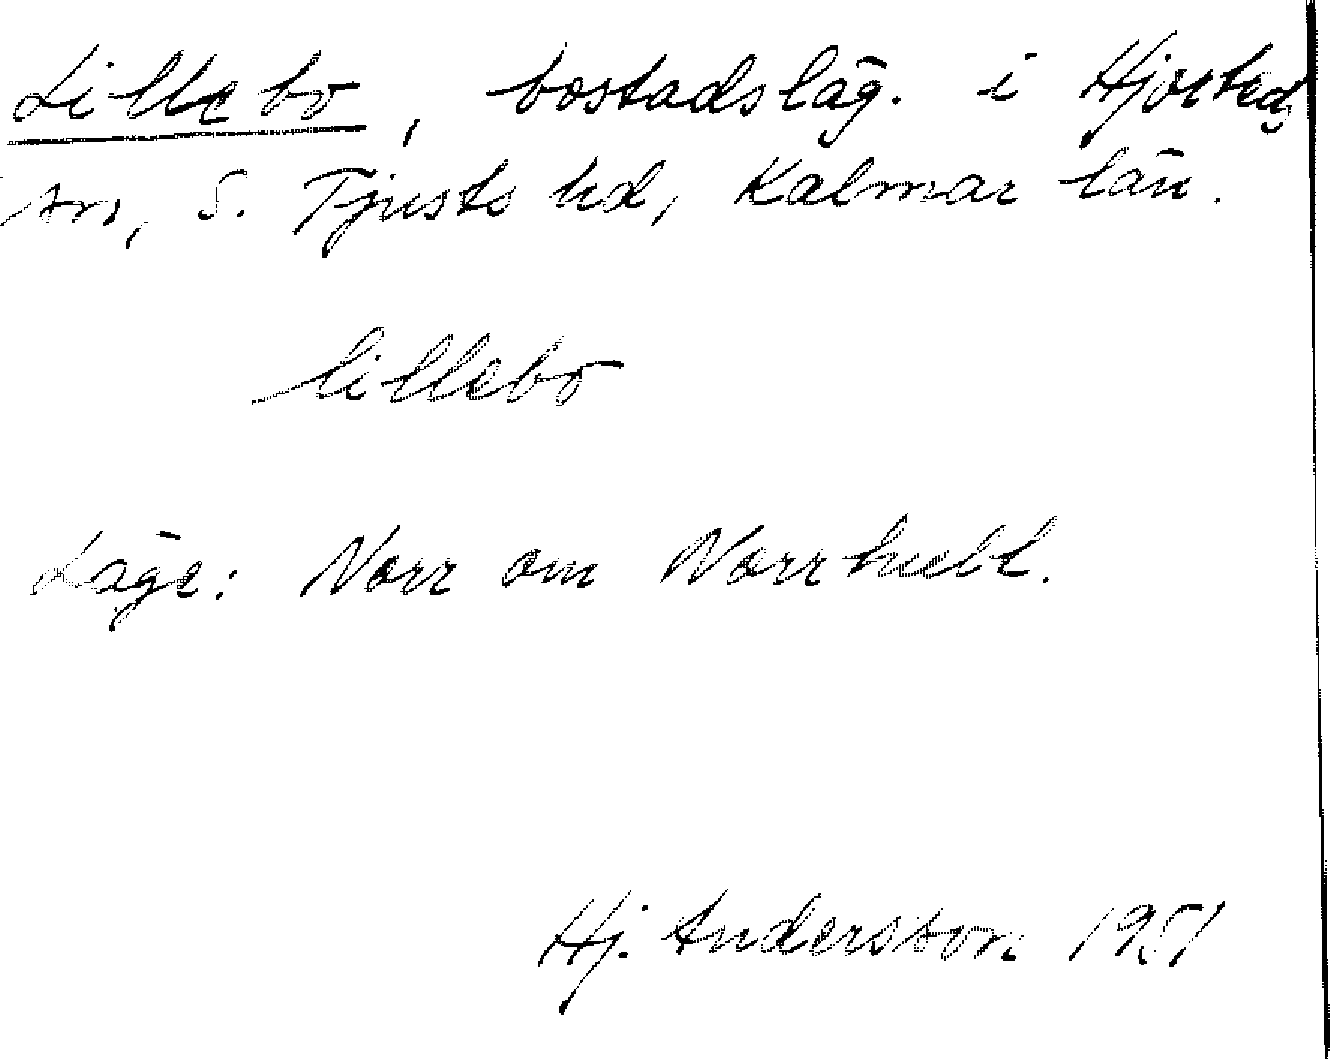 Lillebo, bostadsläg. i Hjorteds
sn, S. Tjusts hd, Kalmar län.
lillebo
Läge: Norr om Norrhult.
Hj. Andersson 1951